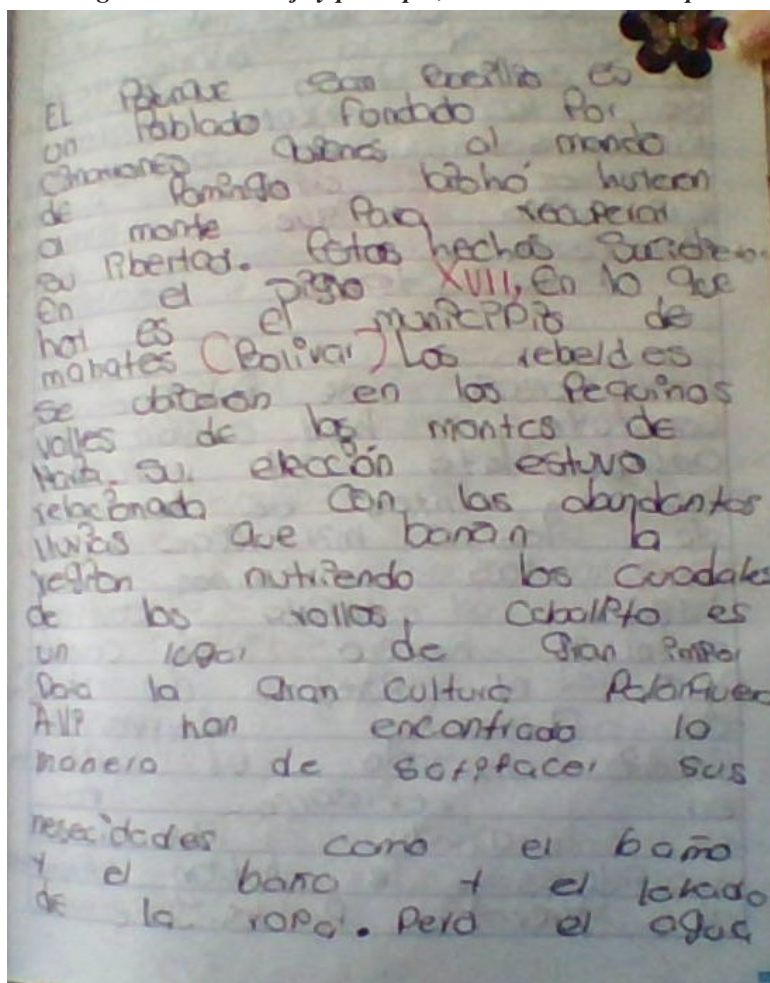 EL Palenque San Bacilio es
un Poblado fondado Por
cimarrones quienes al mando
de Domingo biohó huieron
a monte Para recuperar
su libertad. Estos hechos
En el siglo XVII, en lo que
hoi es el municipio de
mahates (Bolívar) Los rebeldes
se en los Pequinos
valles de los montes de
María. Su elección estuvo
relacionada con las abundantes
lluvias que banan la
región nutriendo los
de los rollos, Caballito es
un lugar de Gran impor
Para la Gran Cultura
AllP han encontrado la
manera de sus
nesecidades como el baño
y el bano y el lavado
de la ropa. Pero el agua